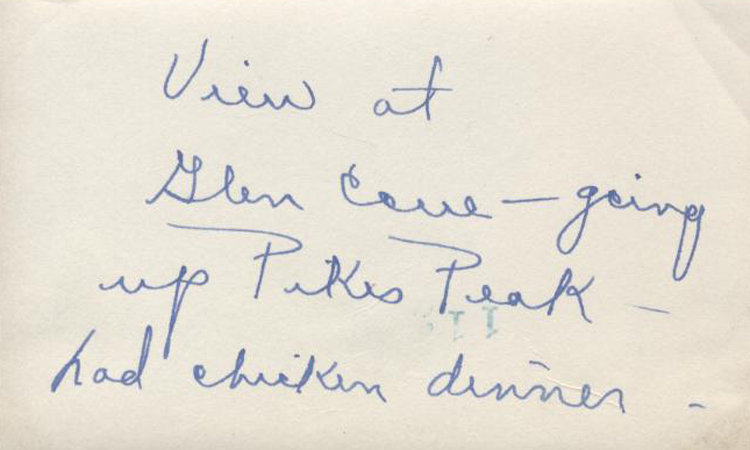 View at
Glen Cove — going
up Pikes Peak —
had chicken dinner -